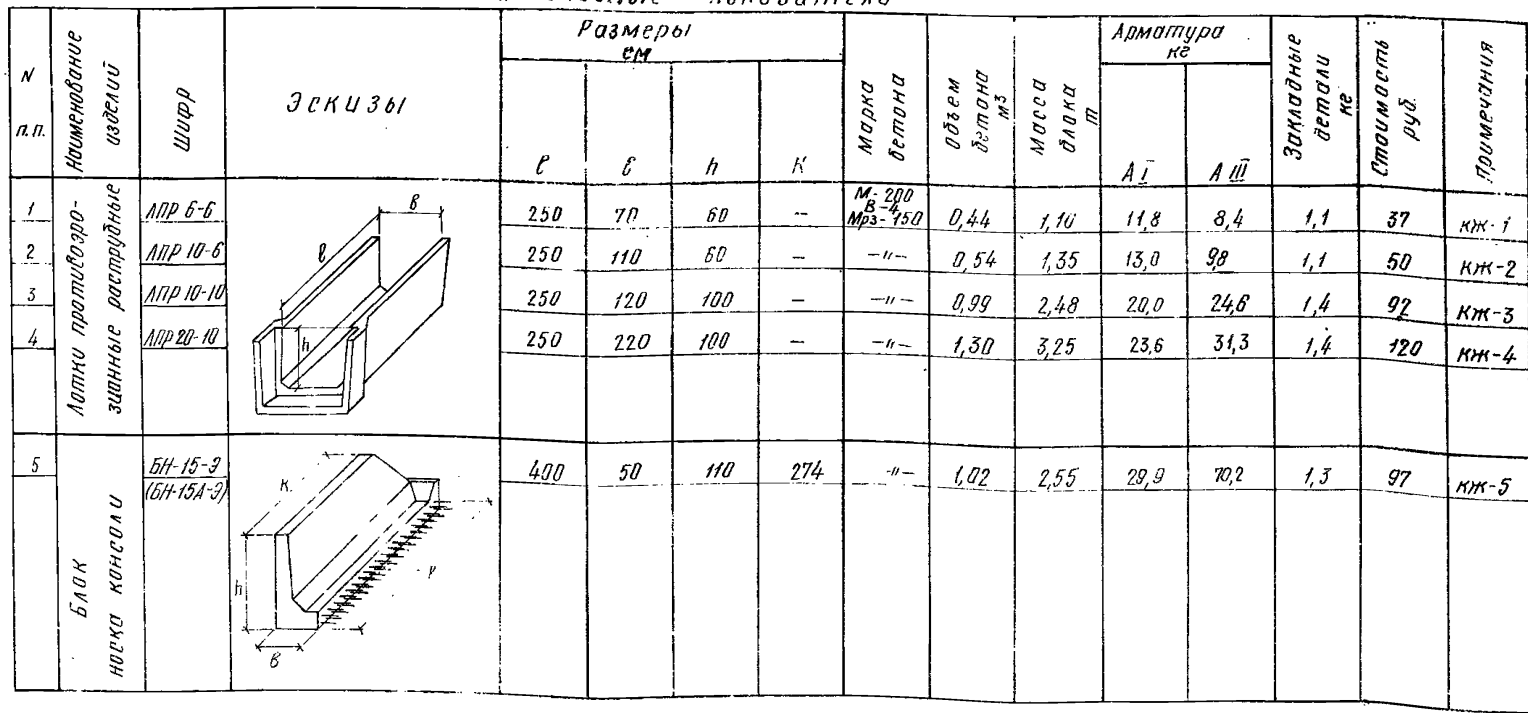 показатели
N п.п. | Наименование изделий | Шифр | Эскизы | Размеры см | Марка бетона | Объем бетона м3 | Масса блока т | Арматура кг | Закладные детали кг | Стоимость руб. | Примечания
ℓ | в | h | К | А I | А III
Лотки противоэрозионные раструбные
1 | ЛПР 6-6 | 250 | 70 | 60 | – | М-200 В-4 Мрз-150 | 0,44 | 1,10 | 11,8 | 8,4 | 1,1 | 37 | КЖ-1
2 | ЛПР 10-6 | 250 | 110 | 60 | – | –"– | 0,54 | 1,35 | 13,0 | 9,8 | 1,1 | 50 | КЖ-2
3 | ЛПР 10-10 | 250 | 120 | 100 | – | –"– | 0,99 | 2,48 | 20,0 | 24,6 | 1,4 | 92 | КЖ-3
4 | ЛПР 20-10 | 250 | 220 | 100 | – | –"– | 1,30 | 3,25 | 23,6 | 31,3 | 1,4 | 120 | КЖ-4
в
ℓ
h
Блок носка консоли
5 | БН-15-Э (БН-15А-Э) | 400 | 50 | 110 | 274 | –"– | 1,02 | 2,55 | 29,9 | 70,2 | 1,3 | 97 | КЖ-5
К
h
ℓ
в